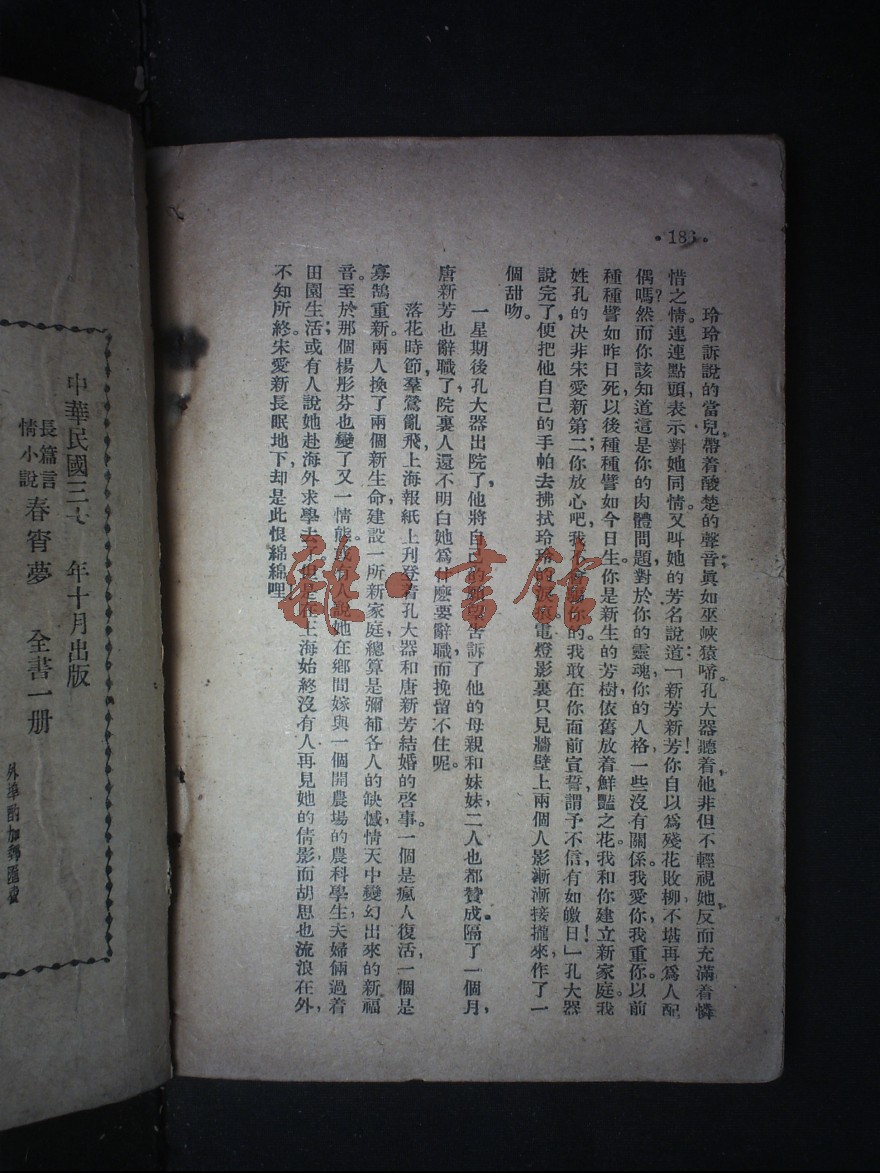 ·183·
玲玲訴說的當兒，帶着酸楚的聲音，眞如巫峽猿啼。孔大器聽着，他非但不輕視她，反而充滿着憐
惜之情，連連點頭，表示對她同情。又叫她的芳名說道：「新芳新芳！你自以爲殘花敗柳，不堪再爲人配
偶嗎？然而你該知道這是你的肉體問題，對於你的靈魂，你的人格，一些沒有關係。我愛你，我重你。以前
種種譬如昨日死，以後種種譬如今日生。你是新生的芳樹，依舊放着鮮豔之花。我和你建立新家庭。我
姓孔的决非宋愛新第二，你放心吧！我
你的。我敢在你面前宣誓，謂予不信，有如皦日」孔大器
說完了，便把他自己的手帕去拂拭玲玲的
電燈影裏只見牆壁上兩個人影漸漸接攏來，作了一
個甜吻。
一星期後孔大器出院了，他將自己的
告訴了他的母親和妹妹，二人也都贊成。隔了一個月，
唐新芳也辭職了，院裏人還不明白她爲什麼要辭職，而挽留不住呢。
落花時節，羣鶯亂飛，上海報紙上刊登着孔大器和唐新芳結婚的啓事。一個是瘋人復活，一個是
寡鵠重新，兩人換了兩個新生命，建設一所新家庭，總算是彌補各人的缺憾，情天中變幻出來的新福
音。至於那個楊彤芬也變了又一情態，或有人說她在鄉間嫁與一個開農場的農科學生，夫婦倆過着
田園生活；或有人說她赴海外求學去了。但是在上海始終沒有人再見她的倩影，而胡思也流浪在外，
不知所終。宋愛新長眠地下，却是此恨綿綿哩！
中華民國三七年十月出版
長篇言
情小說
春宵夢 全書一册
外埠酌加郵匯費
雜·書館